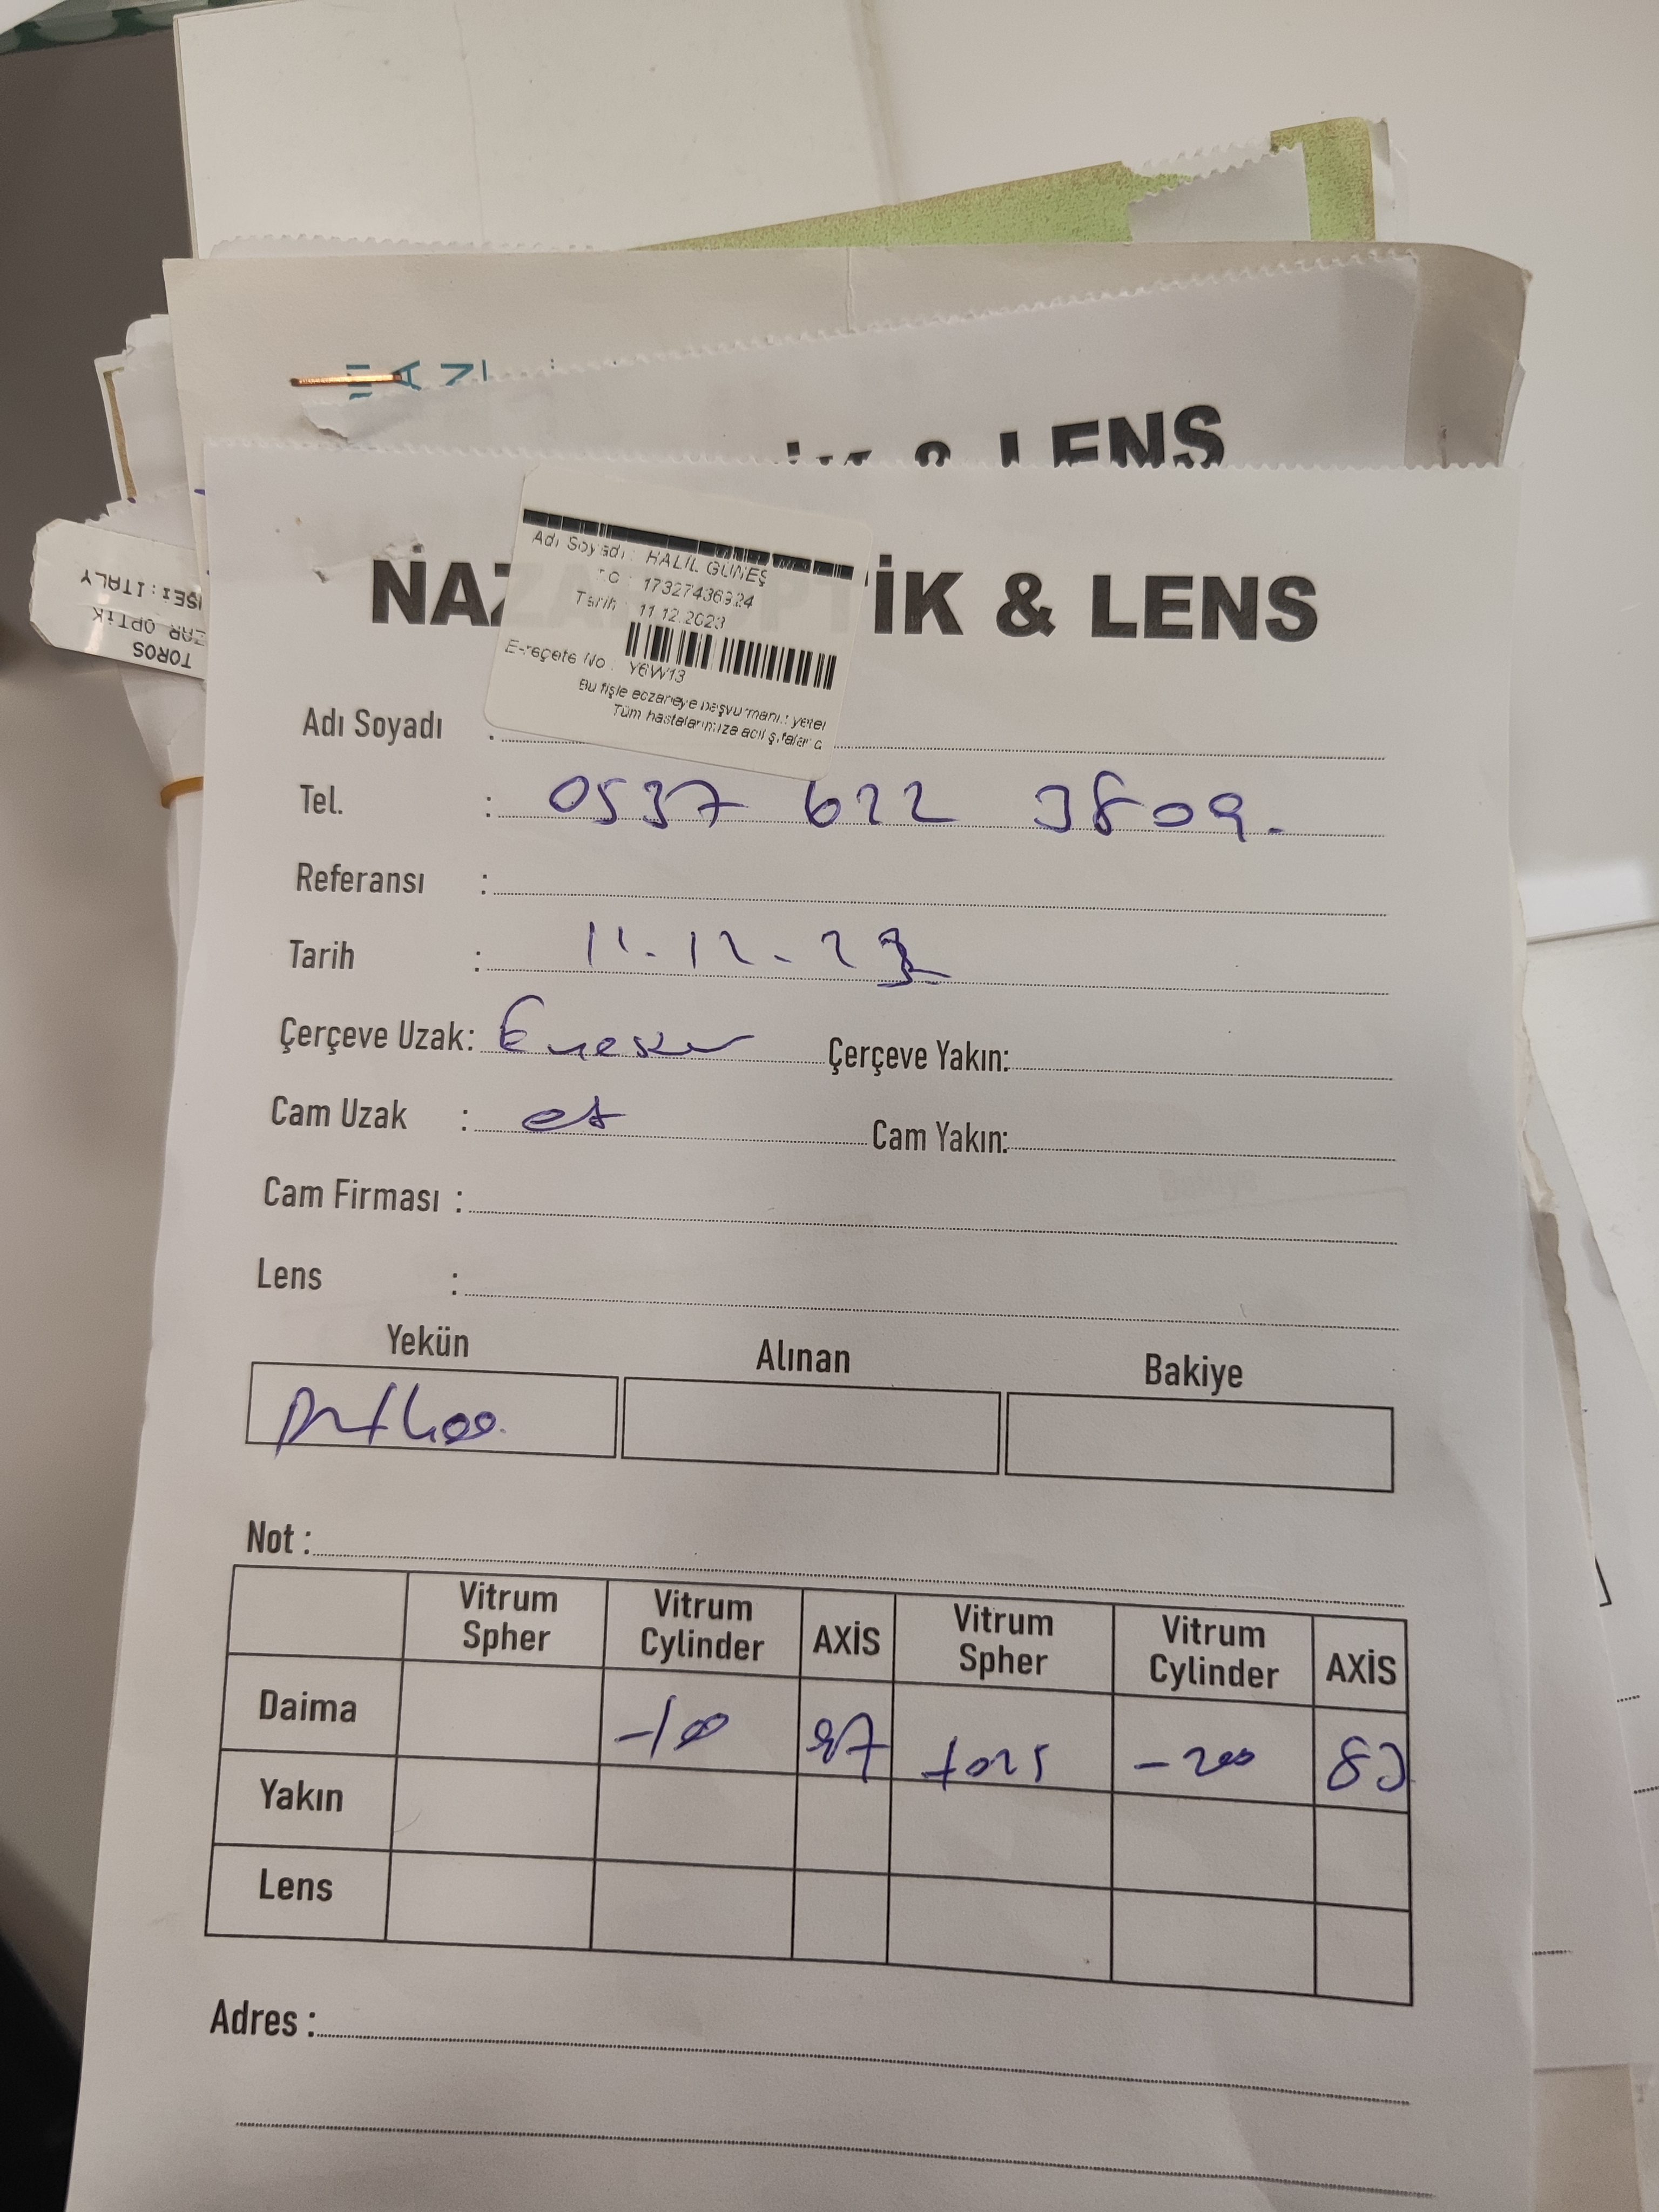 İK & LENS
NAZ İK & LENS
Adı Soyadı : HALİL GÜNEŞ
17327436924
Tarih : 11.12.2023
E-reçete No : Y6W13
Bu fişle eczaneye başvurmanız yeter
Tüm hastalarımıza acil şifalar
TOROS
ZAR OPTİK
ŞEİ:ITALY
Adı Soyadı :
Tel. : 0537 622 3809.
Referansı :
Tarih : 11.12.23
Çerçeve Uzak: Çerçeve Yakın:
Cam Uzak : Cam Yakın:
Cam Firması :
Lens :
Yekün Alınan Bakiye
Not :
Vitrum Spher Vitrum Cylinder AXİS Vitrum Spher Vitrum Cylinder AXİS
Daima -100 97 +025 -200
Yakın
Lens
Adres :